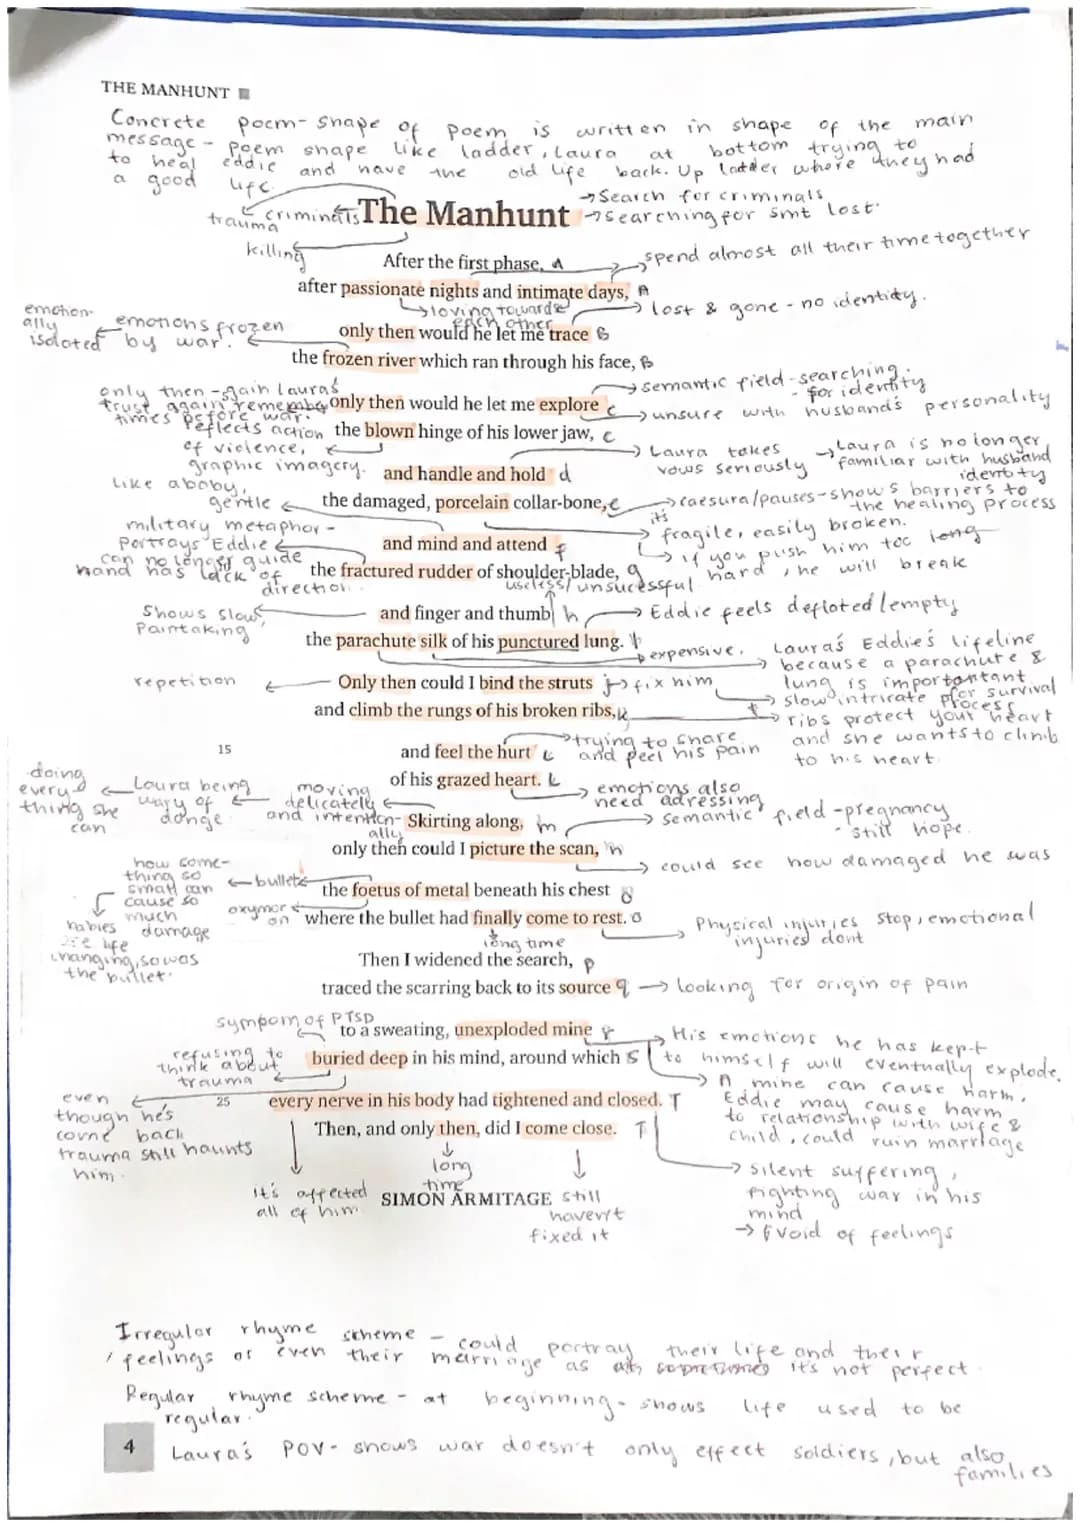 THE MANHUNT
Concrete poem- shape of poem is written in shape of the main
message - poem shape like ladder, Laura at bottom trying to
to heal eddie and have the old life back. Up ladder where they had
a good life.
→ Search for criminals
trauma criminals The Manhunt → searching for smt lost.
killing
After the first phase, A
spend almost all their time together
after passionate nights and intimate days, A
→ loving towards each other
→ lost & gone - no identity.
emotionally isolated ← emotions frozen by war.
only then would he let me trace B
the frozen river which ran through his face, B
→ semantic field - searching.
- for identity
only then - gain Laura's
trust again, remember
times before war.
only then would he let me explore C
→ unsure with husband's personality
reflects action
of violence,
graphic imagery.
the blown hinge of his lower jaw, C
→ Laura takes vows seriously
→ Laura is no longer familiar with husband identity
and handle and hold d
like a baby,
gentle ←
the damaged, porcelain collar-bone, e
→ caesura/pauses - shows barriers to the healing process
military metaphor -
Portrays Eddie
can no longer guide
hand has lack of
direction.
its fragile, easily broken.
and mind and attend f
→ if you push him too long
hard, he will break
the fractured rudder of shoulder-blade, g
useless/unsucessful
Shows slow,
Paintaking
and finger and thumb h
→ Eddie feels defloted/empty
the parachute silk of his punctured lung. h
expensive.
Laura's Eddie's lifeline
because a parachute &
lung is importantant
for survival
repetition ←
Only then could I bind the struts j → fix him
→ slow intricate process
and climb the rungs of his broken ribs, k
→ ribs protect your heart
and she wants to climb
to his heart.
15
and feel the hurt L
→ trying to share
and feel his pain
of his grazed heart. L
→ emotions also
need adressing
doing
every
thing she
can
← Laura being
wary of
← moving
delicately
and intentionally
Skirting along, m
→ semantic field - pregnancy
- still hope.
only then could I picture the scan, n
→ could see how damaged he was
how something so
small can
cause so
much
damage
← bullet
the foetus of metal beneath his chest
babies
are life
changing, so was
the bullet.
oxymoron
where the bullet had finally come to rest. o
long time
→ Physical injuries stop, emotional
injuries dont
Then I widened the search, p
traced the scarring back to its source q → looking for origin of pain
sympom of PTSD
to a sweating, unexploded mine r
→ His emotions he has kept
to himself will eventually explode.
refusing to
think about
trauma
buried deep in his mind, around which S
→ A mine can cause harm.
Eddie may cause harm
to relationship with wife &
child, could ruin marriage
even
though he's
come back
trauma still haunts
him.
25
every nerve in his body had tightened and closed. T
Then, and only then, did I come close. T
long
time
→ silent suffering,
fighting war in his
mind
→ void of feelings
it's affected
all of him
SIMON ARMITAGE
still
haven't
fixed it
Irregular rhyme scheme - could portray their life and their
/ feelings or even their marriage as it's not perfect.
Regular rhyme scheme - at beginning - shows life used to be
regular.
4
Laura's POV - shows war doesn't only effect soldiers, but also
families